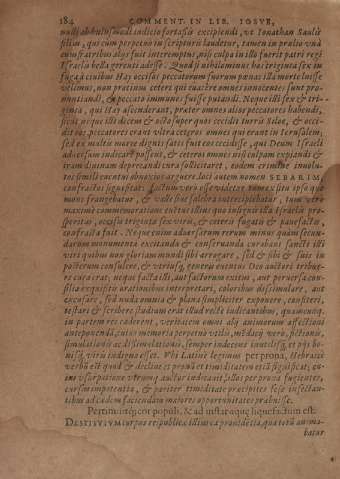 184 COMMENT. IN LIB. IOSVE,
nulli ab huiusmodi iudicio fortassis excipiendi, vt Ionathan Saulis
filius, qui cum perpetuo in scripturis laudetur, tamen in prælio vnà
cum fratribus alijs fuit interemptus, nisi culpa in illo fuerit patri regi
Israelis belli gerendi adesse. Quod si nihilominus hos triginta sex in
fuga à ciuibus Hay occisos peccatorum suorum pœnas illa morte luisse
velimus, non protinus ceteri qui euasere omnes innocentes sunt pro-
nuntiandi, & peccato immunes fuisse putandi. Neque illi sex & tri-
ginta, qui Hay ascenderant, præter omnes alios peccatores habendi,
sicut neque illi decem & octo super quos cecidit turris Siloe, & occi-
dit eos, peccatores erant vltra ceteros omnes qui erant in Ierusalem,
sed ex multis morte dignis satis fuit eos cecidisse, qui Deum Israeli
aduersum indicare possent, & ceteros omnes suis culpam expiandi &
iram diuinam deprecandi cura sollicitaret, eodem crimine
simili euentui obnoxios arguere. loci autem nomen SEBARIM,
confractos significat. factum verò esse videtur nomen ex ita ipsa quo
mons frangebatur, & vallesue saleb a subrecipiebatur, tum verò
maximè commemoratione euentus illius quo insignis illa Israelis pro-
speritas, occisis triginta sex viris, & ceteris fugatis & pauefactis,
confracta fuit. Neque enim aduersarum rerum minus quàm secun-
darum monumenta excitanda & conseruanda curabant sancti illi
viri quibus non gloriam mundi sibi arrogare, sed & sibi & suis in
posterum consulere, & virtutis, generis euentus Deo auctori tribue-
re cura erat; neque facta illi, aut factorum exitus, aut peruersa con-
silia exquisitis orationibus interpretari, coloribus dissimulare, aut
excusare, sed nuda omnia & plana simpliciter exponere, confiteri,
testari & scribere studium erat illud rectè indicantibus, quamcunque
in partem res caderent, veritatem omni alij animorum affectioni
anteponendam, cuius memoria perpetuò vtilis, mendacij verò, fictionis,
simulationis ac dissimulationis, semper indecens inutilisque, & pijs bo-
nisque viris indigna esset. Vbi Latinè legimus per prona, Hebraicè
verbū est quod & decliue et pronū et timiditatem etiā significat; cu-
ius vsurpatione vtrumque auctor indicauit, illos per prona fugientes,
cursum impotentia, & pariter timiditate præcipites sese insectan-
tibus ad cædem faciendam maiores opportunitates præbuisse.
Pertimuitque cor populi, & ad instar aquæ liquefactum est.
DESTITVTVM turpos reipublicæ illius ea prouidentia, qua totū anima-
batur